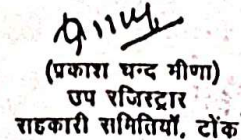 (प्रकाश चन्द मीणा)
उप रजिस्ट्रार
सहकारी समितियाँ, टोंक